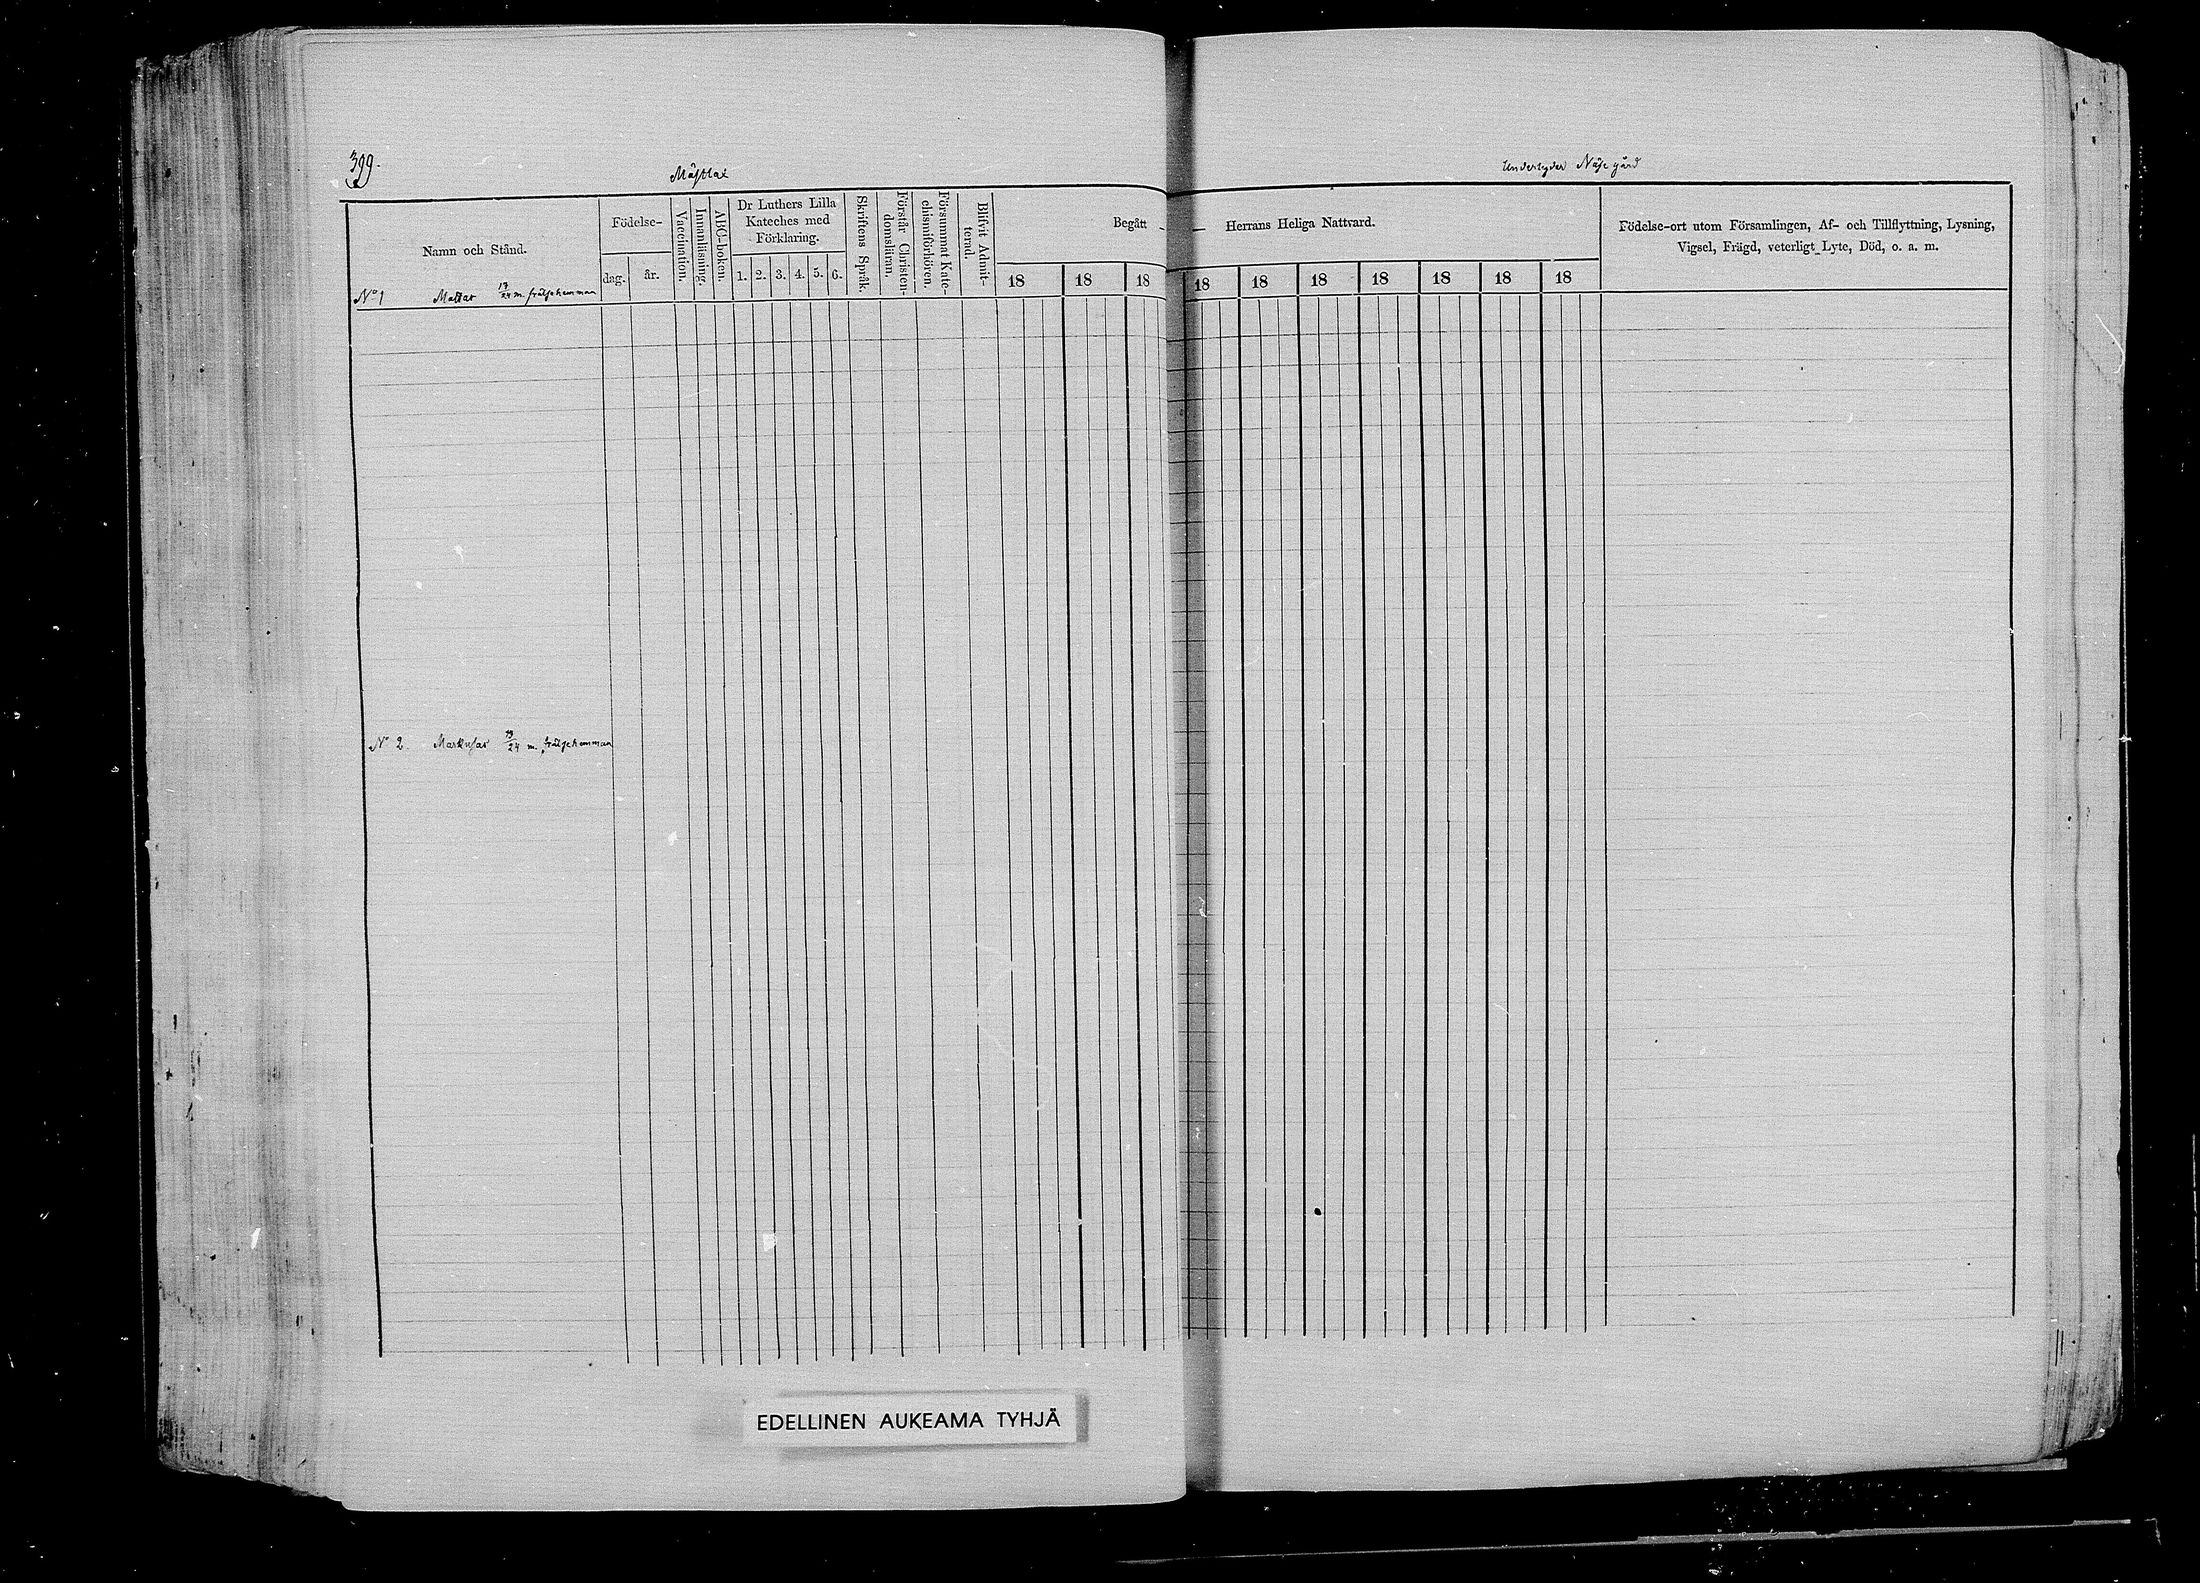 399.
Mästlax
Underlyder Näse gård
Namn och Stånd.
Födelse-
dag.
år.
Vaccination.
Innanläsning.
ABC-boken.
Dr Luthers Lilla
Kateches med
Förklaring.
1. 2. 3. 4. 5. 6.
Skriftens Språk.
Förstår Christen-
domsläran.
Försummat Kate-
chismiförhören.
Blifvit Admit-
terad.
Begått
Herrans Heliga Nattvard.
18 18 18 18 18 18 18 18 18 18
Födelse-ort utom Församlingen, Af- och Tillflyttning, Lysning,
Vigsel, Frägd, veterligt Lyte, Död, o. a. m.
No 1 m. frälsehemman
No 2. Markusas 19/24 m. frälsehemman
EDELLINEN AUKEAMA TYHJÄ